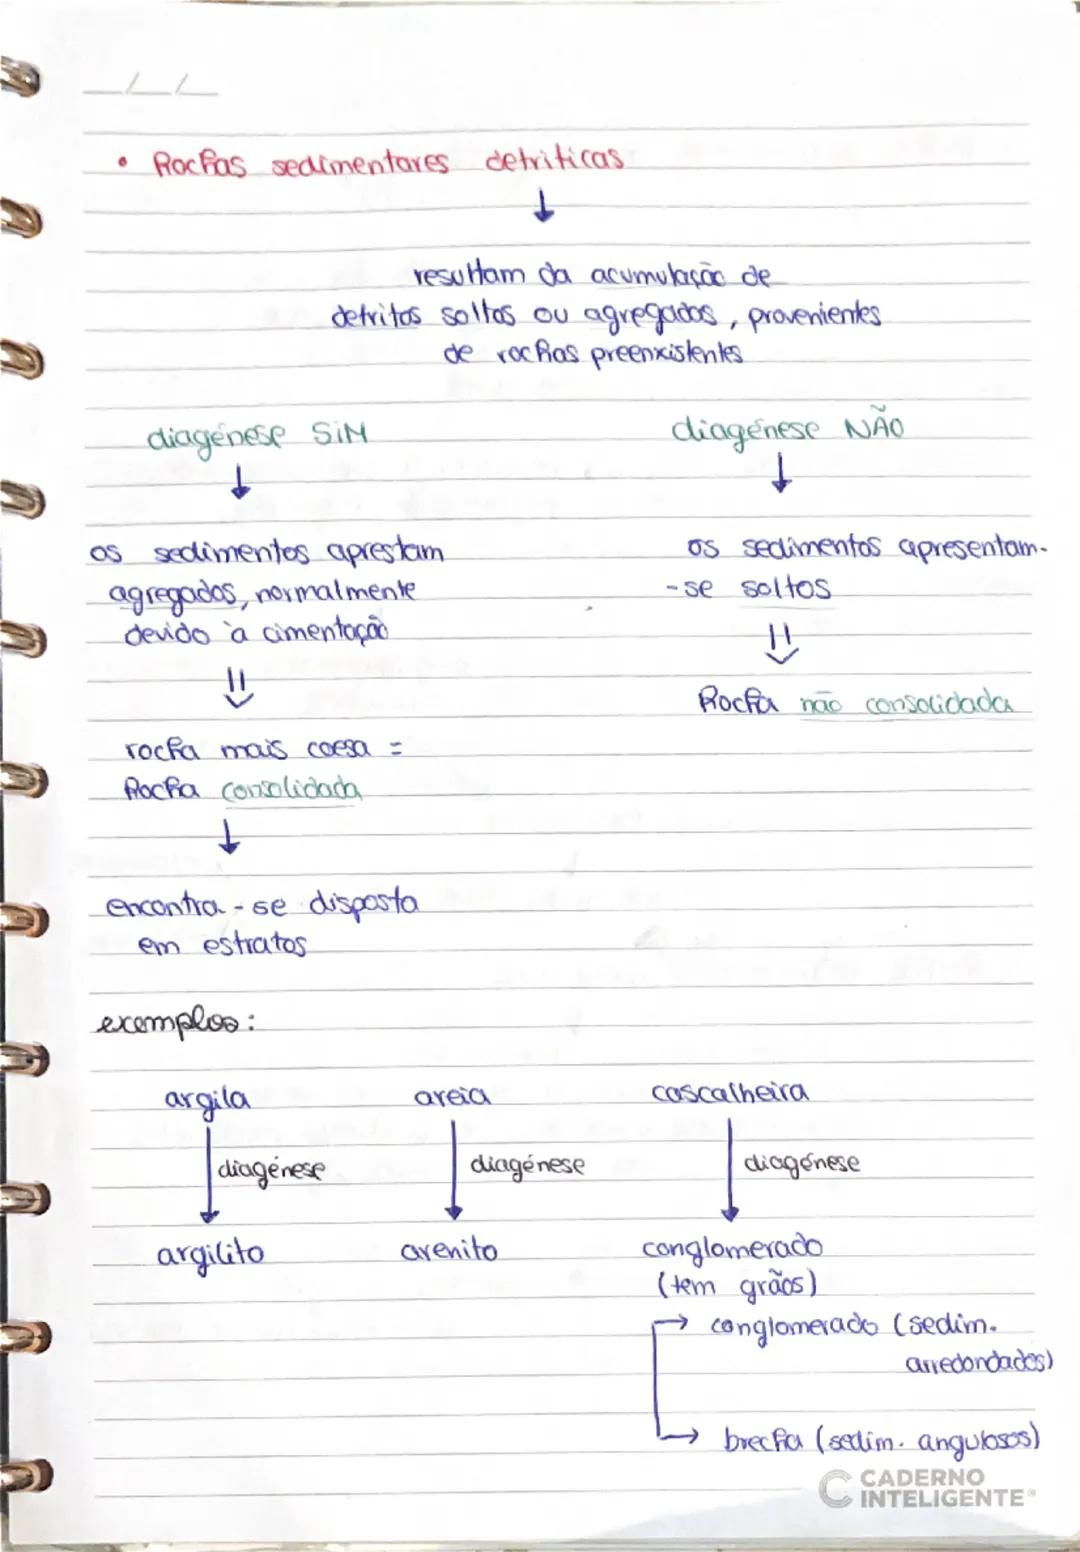 • Rochas sedimentares detriticas
↓
resultam da acumulação de
detritos soltos ou agregados, provenientes
de rochas preenxistentes
diagénese SiM
↓
os sedimentos aprestam
agregados, normalmente
devido à cimentação
⇓
rocha mais coesa =
Rocha consolidada
↓
encontra-se disposta
em estratos
diagénese NÃO
↓
os sedimentos apresentam-
-se soltos
⇓
Rocha não consolidada
exemplos:
argila areia cascalheira
diagénese diagénese diagénese
argilito arenito conglomerado
(tem grãos)
→ conglomerado (sedim.
arredondados)
→ brecha (sedim. angulosos)
CADERNO
INTELIGENTE®